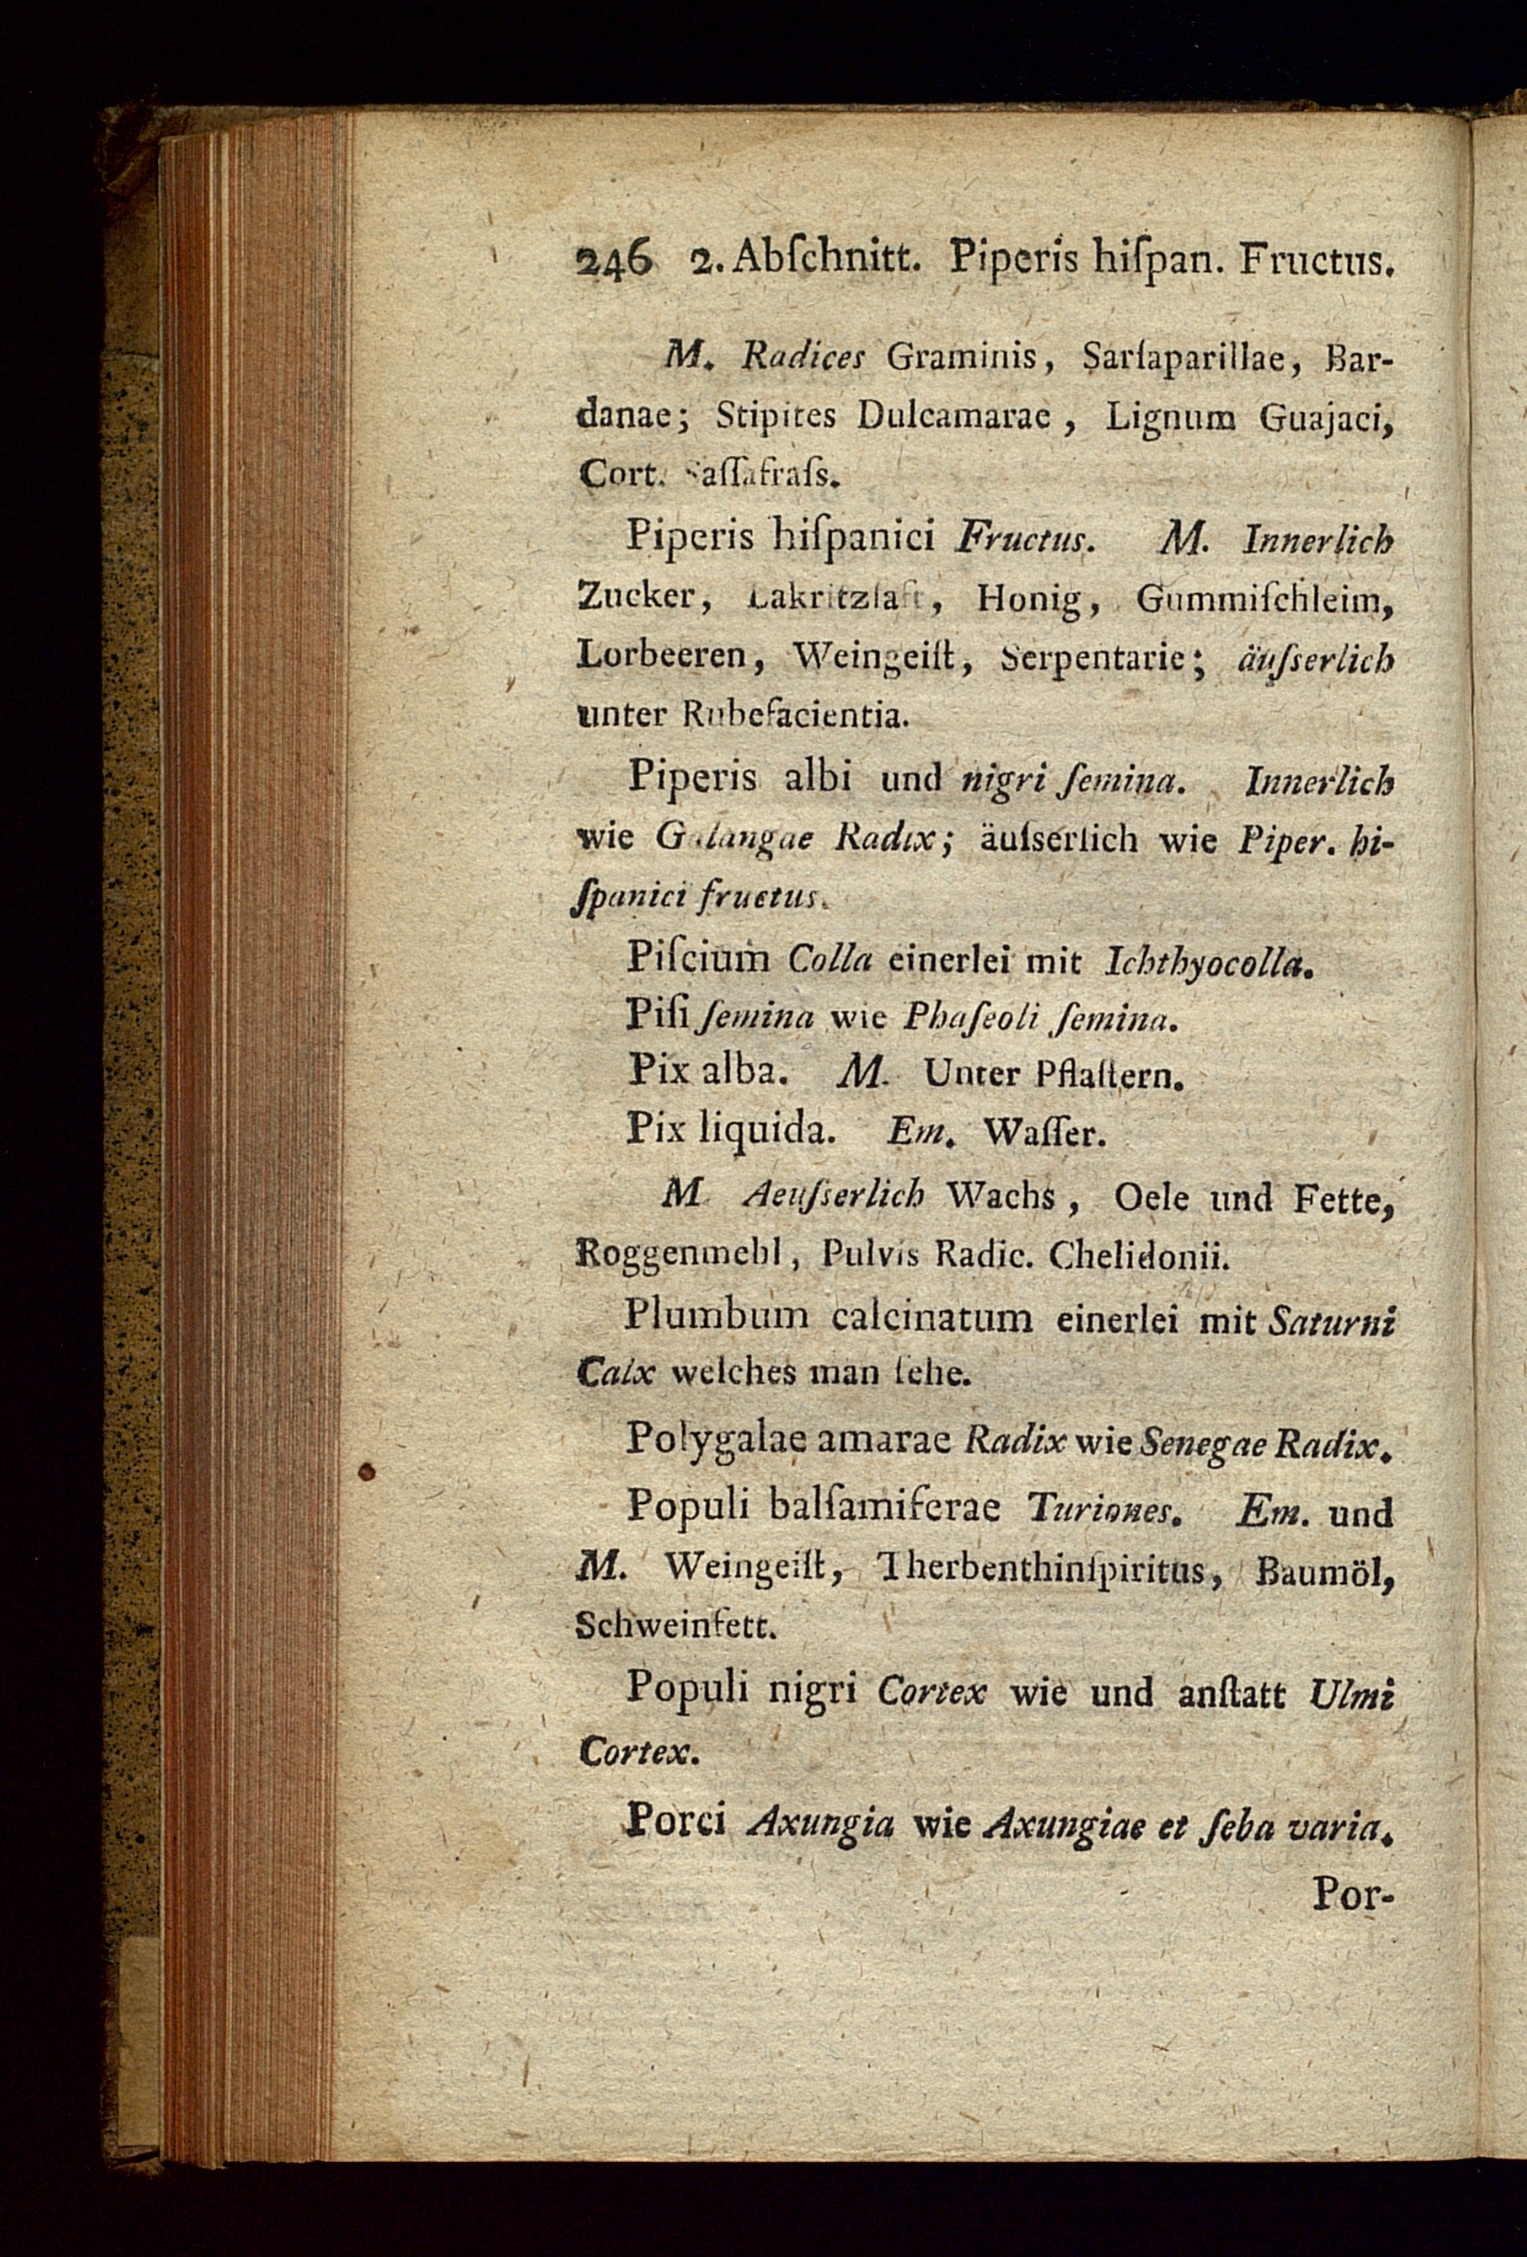 246 2. Abſchnitt. Piperis hiſpan. Fructus.
M. Radices Graminis, Sarſaparillae, Bar-
danae; Stipites Dulcamarae, Lignum Guajaci,
Cort. Saſſafraſs.
Piperis hiſpanici Fructus. M. Innerlich
Zucker, Lakritzſaft, Honig, Gummiſchleim,
Lorbeeren, Weingeiſt, Serpentarie; äuſserlich
unter Rubefacientia.
Piperis albi und nigri ſemina. Innerlich
wie Galangae Radix; äuſserlich wie Piper. hi-
ſpanici fructus.
Piſcium Colla einerlei mit Ichthyocolla.
Piſi ſemina wie Phaſeoli ſemina.
Pix alba. M. Unter Pflaſtern.
Pix liquida. Em. Waſſer.
M Aeuſserlich Wachs, Oele und Fette,
Roggenmehl, Pulvis Radic. Chelidonii.
Plumbum calcinatum einerlei mit Saturni
Calx welches man ſehe.
Polygalae amarae Radix wie Senegae Radix.
Populi balſamiferae Turiones. Em. und
M. Weingeiſt, Therbenthinſpiritus, Baumöl,
Schweinfett.
Populi nigri Cortex wie und anſtatt Ulmi
Cortex.
Porci Axungia wie Axungiae et ſeba varia.
Por-